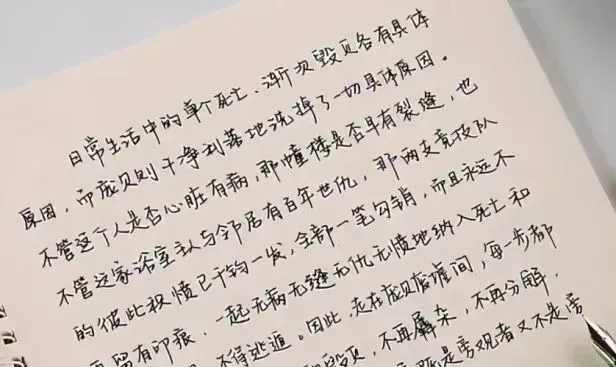 日常生活中的单个死亡、渐次毁页各有具体
原因,而虚贝则干净利落地洗掉了一切具体原因。
不管这个人是否心脏有病,那幢楼是否早有裂缝,也
不管这家浴室主人与邻居有百年世仇,那两支竞技队
的彼此积愤已千钧一发,全部一笔勾销,而且永远不
留有印痕,一起无病无缝无仇无愤地纳入死亡和
不得逃遁。因此,走在虚贝废墟间,每一步都
毁页,不再羼杂,不再分解,
是旁观者又不是旁